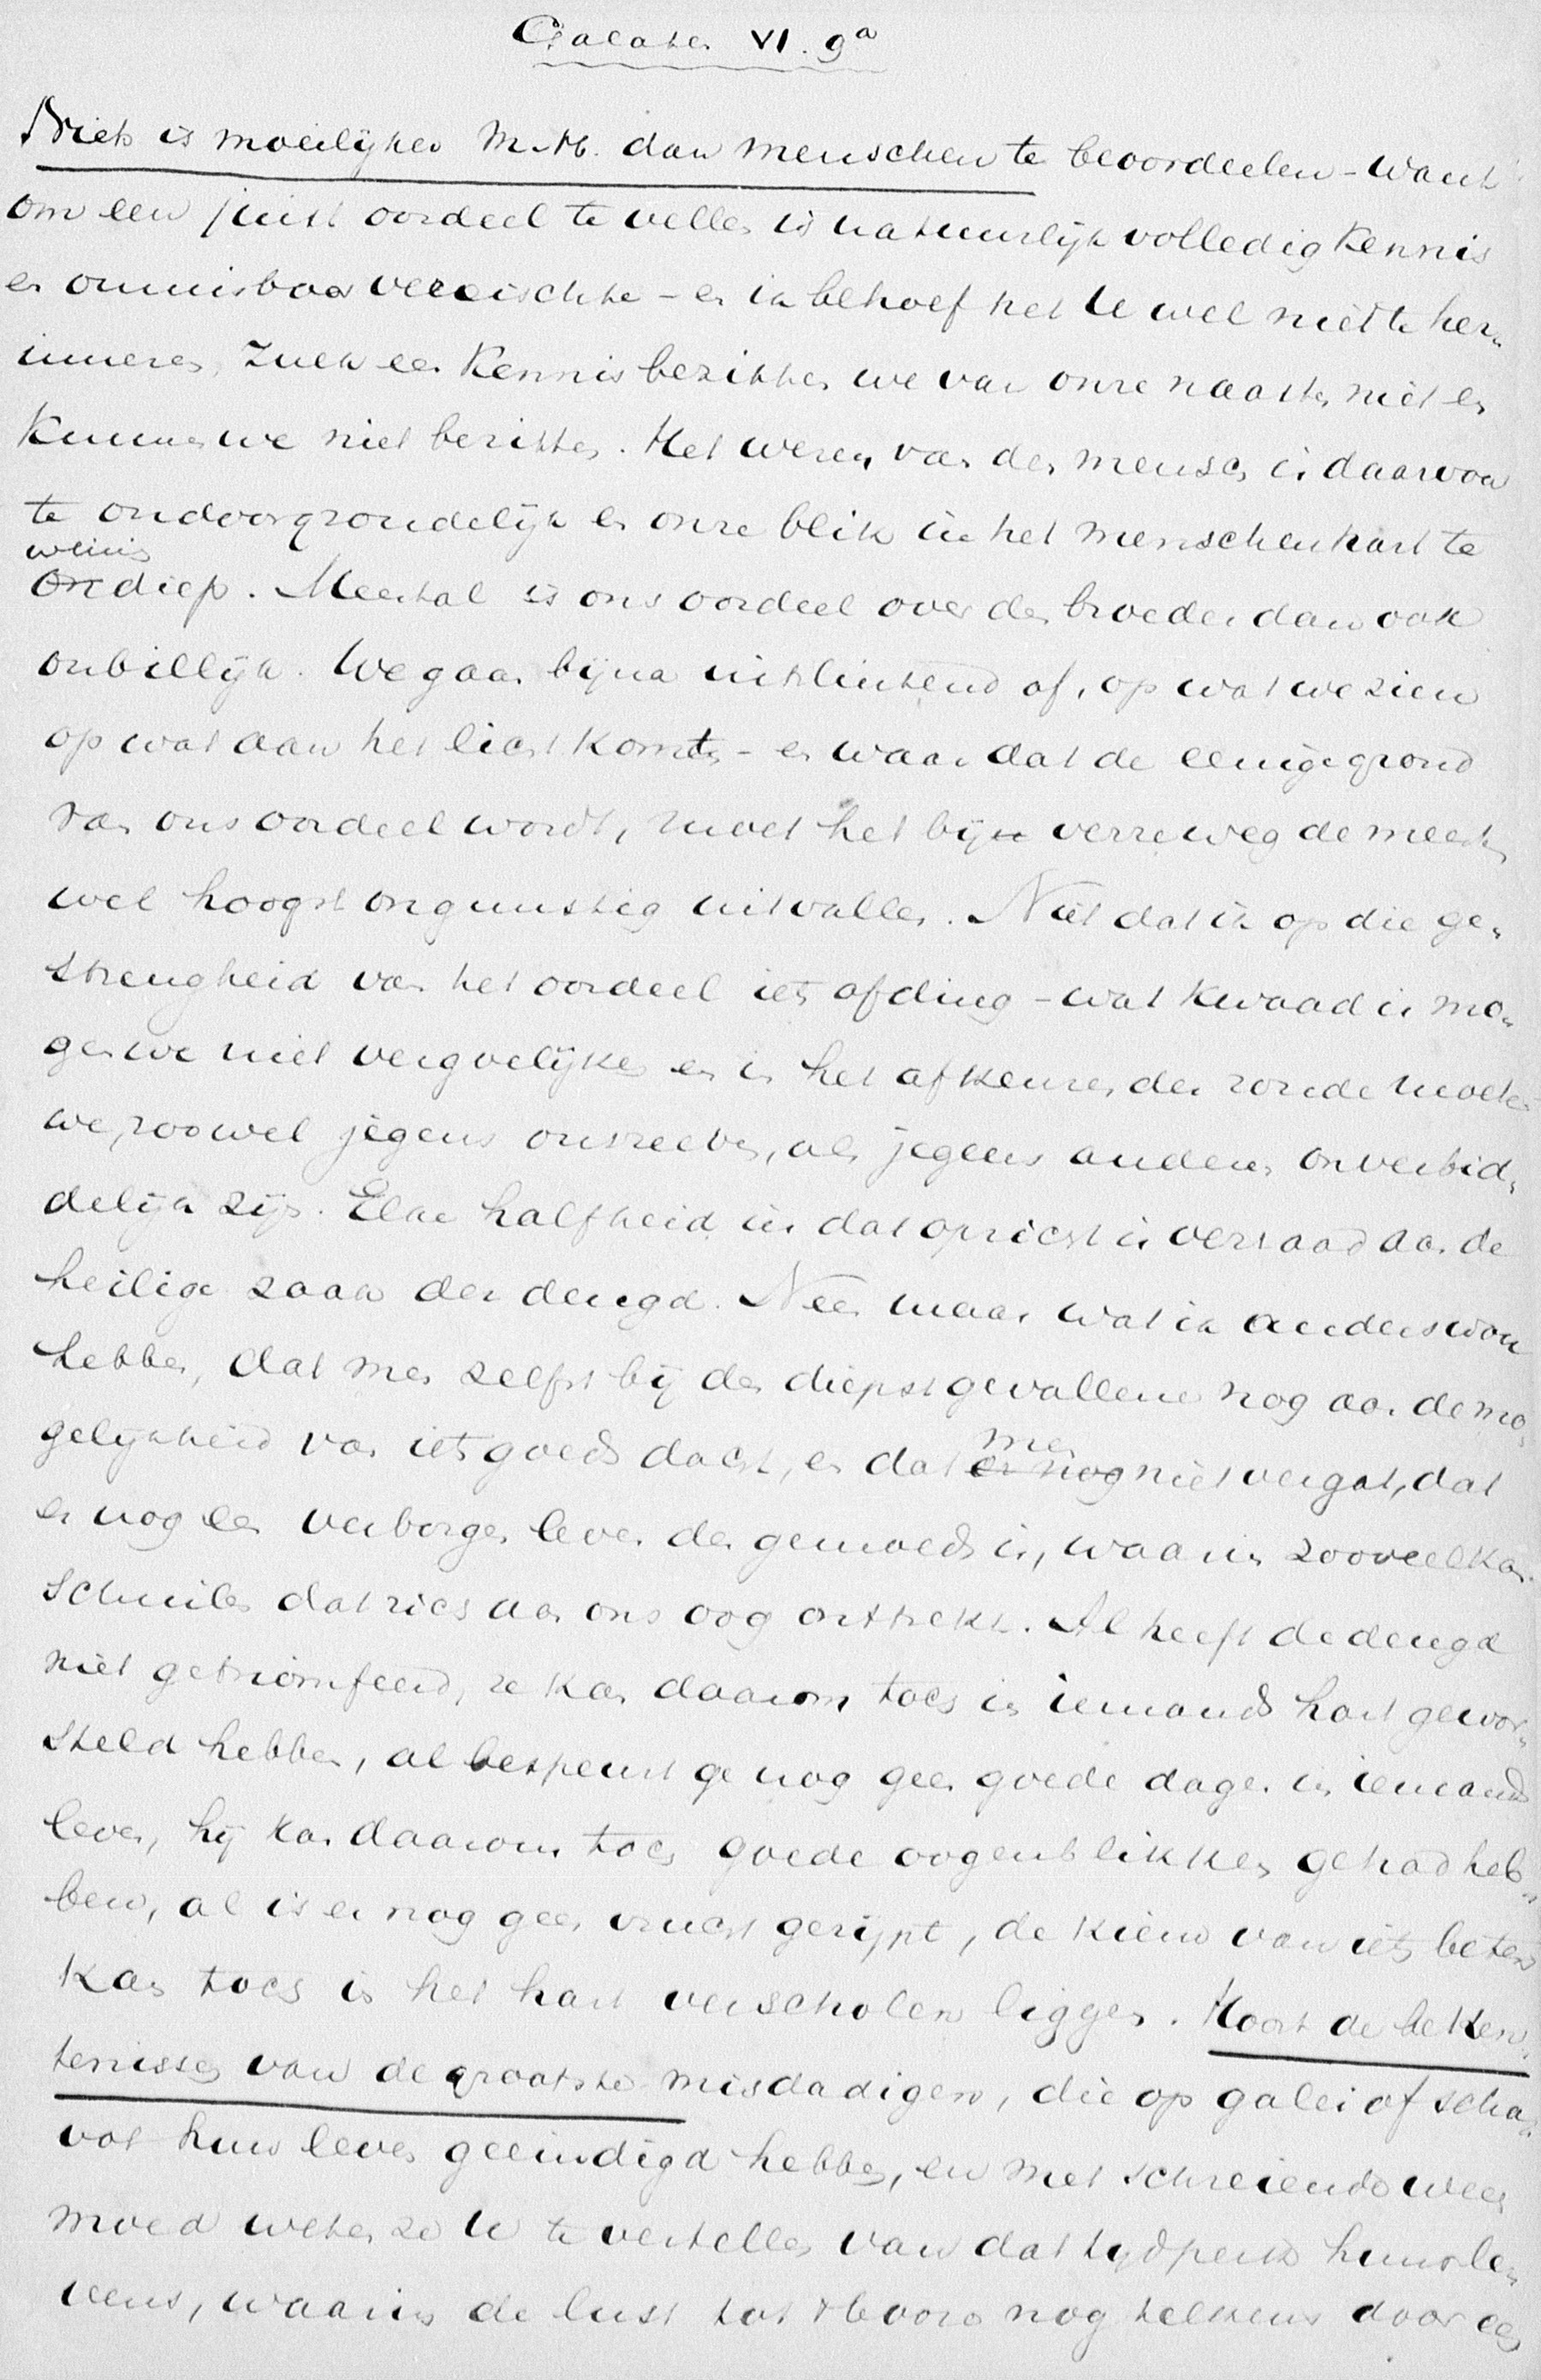 Galaten VI. 9a
Niets is moeilijker M.H. dan menschen te beoordeelen - want
om een juist oordeel te vellen is natuurlijk volledig kennis
een onmisbaar vereischte - en ik behoef het U wel niet te her„
inneren, zulk een kennis bezitten we van onze naasten niet en
kunnen we niet bezitten. Het wezen van den mensch is daarvoor
te ondoorgrondelijk en onze blik in het menschenhart te
weinig
diep. Meestal is ons oordeel over den broeder dan ook
onbillijk. We gaan bijna uitsluitend af, op wat we zien
op wat aan het licht komt - en waar dat de eenige grond
van ons oordeel wordt, moet het bij verreweg de meesten
wel hoogst ongunstig uitvallen. Niet dat ik op die ge„
strengheid van het oordeel iets afding - wat kwaad is mo„
gen we niet vergoelijken en in het afkeuren der zonde moeten
we, zoowel jegens onszelven, als jegens anderen onverbid„
delijk zijn. Elke halfheid in dat opzicht is verraad aan de
heilige zaak der deugd. Neen maar wat ik anders wou
hebben, dat men zelfs bij den diepst gevallene nog aan de mo„
gelijkheid van iets goeds dacht, en dat men niet vergat, dat
er nog een verborgen leven des gemoeds is, waarin zooveel kan
schuilen dat zich aan ons oog onttrekt. Al heeft de deugd
niet getriomfeerd, ze kan daarom toch in iemands hart gewor„
steld hebben, al bespeurt ge nog geen goede dagen in iemands
leven, hij kan daarom toch goede oogenblikken gehad heb„
ben, al is er nog geen vrucht gerijpt, de kiem van iets beters
kan toch in het hart verscholen liggen. Hoort de beken„
tenissen van de grootste misdadigers, die op galei of scha„
vot hun leven geeindigd hebben, en met schreiende wee„
moed weten ze U te vertellen van dat tijdperk huns le„
vens, waarin de lust tot 't booze nog telkens door een